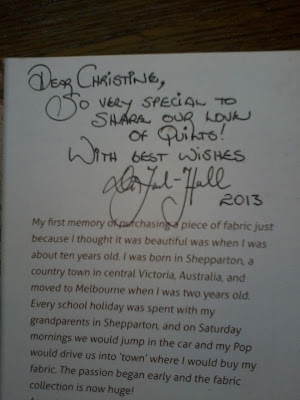 Dear Christine,
So very special to
share our love
of Quilts!
With best wishes
2013
My first memory of purchasing a piece of fabric just
because I thought it was beautiful was when I was
about ten years old. I was born in Shepparton, a
country town in central Victoria, Australia, and
moved to Melbourne when I was two years old.
Every school holiday was spent with my
grandparents in Shepparton, and on Saturday
mornings we would jump in the car and my Pop
would drive us into 'town' where I would buy my
fabric. The passion began early and the fabric
collection is now huge!